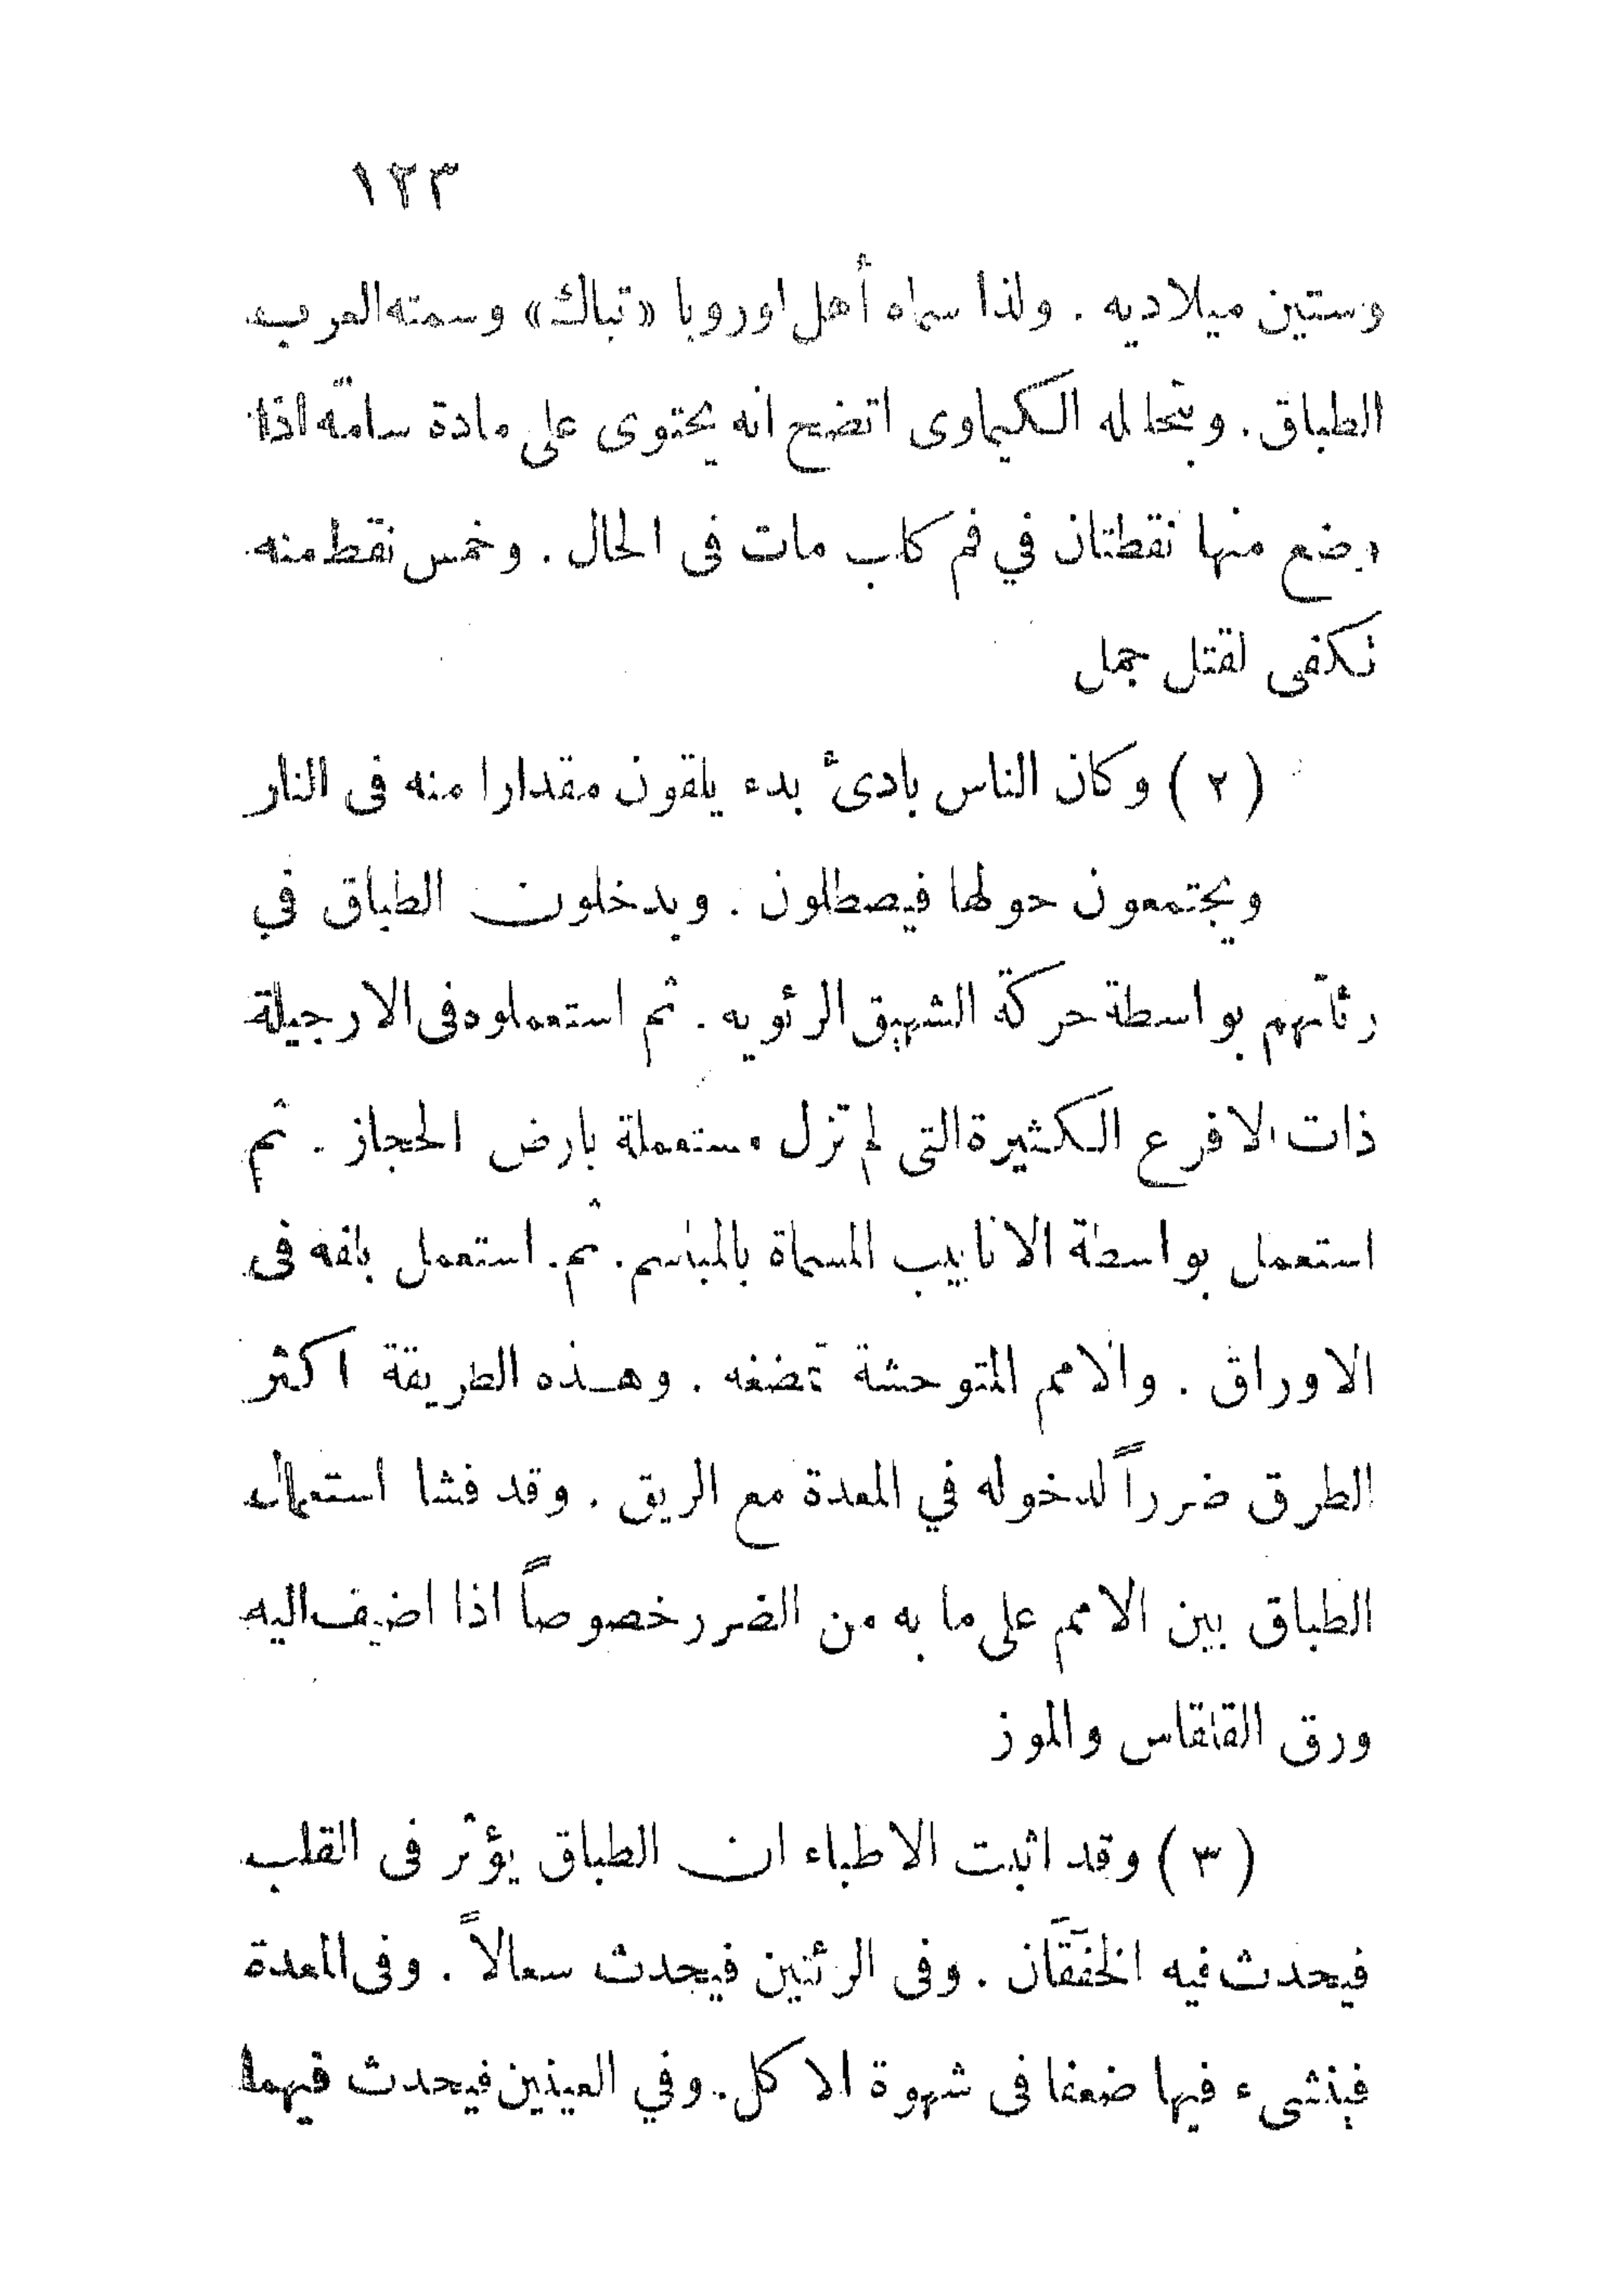 ١٢٣
وستين ميلاديه . ولذا سماه أهل اوروبا «تباك» وسمته العرب
الطباق. وبتحليله الكيماوى اتضح انه يحتوى على مادة سامّة اذا
وضع منها نقطتان في فم كلب مات فى الحال . وخمس نقط منه
تكفى لقتل جمل
(٢) وكان الناس بادئ بدء يلقون مقدارا منه فى النار
ويجتمعون حولها فيصطلون . ويدخلون الطباق في
رئاتهم بواسطة حركة الشهيق الرئويه . ثم استعملوه فى الارجيلة
ذات الافرع الكثيرة التى لم تزل مستعملة بارض الحجاز . ثم
استعمل بواسطة الانابيب المسماة بالمباسم. ثم. استعمل بلفه فى
الاوراق . والامم المتوحشة تمضغه . وهذه الطريقة اكثر
الطرق ضرراً لدخوله في المعدة مع الريق . وقد فشا استعمال
الطباق بين الامم على ما به من الضرر خصوصاً اذا اضيف اليه
ورق القلقاس والموز
(٣) وقد اثبت الاطباء ان الطباق يؤثر فى القلب
فيحدث فيه الخَفَقَان . وفى الرئتين فيحدث سعالاً . وفى المعدة
فينشىء فيها ضعفا فى شهوة الاكل. وفي العينين فيحدث فيهما